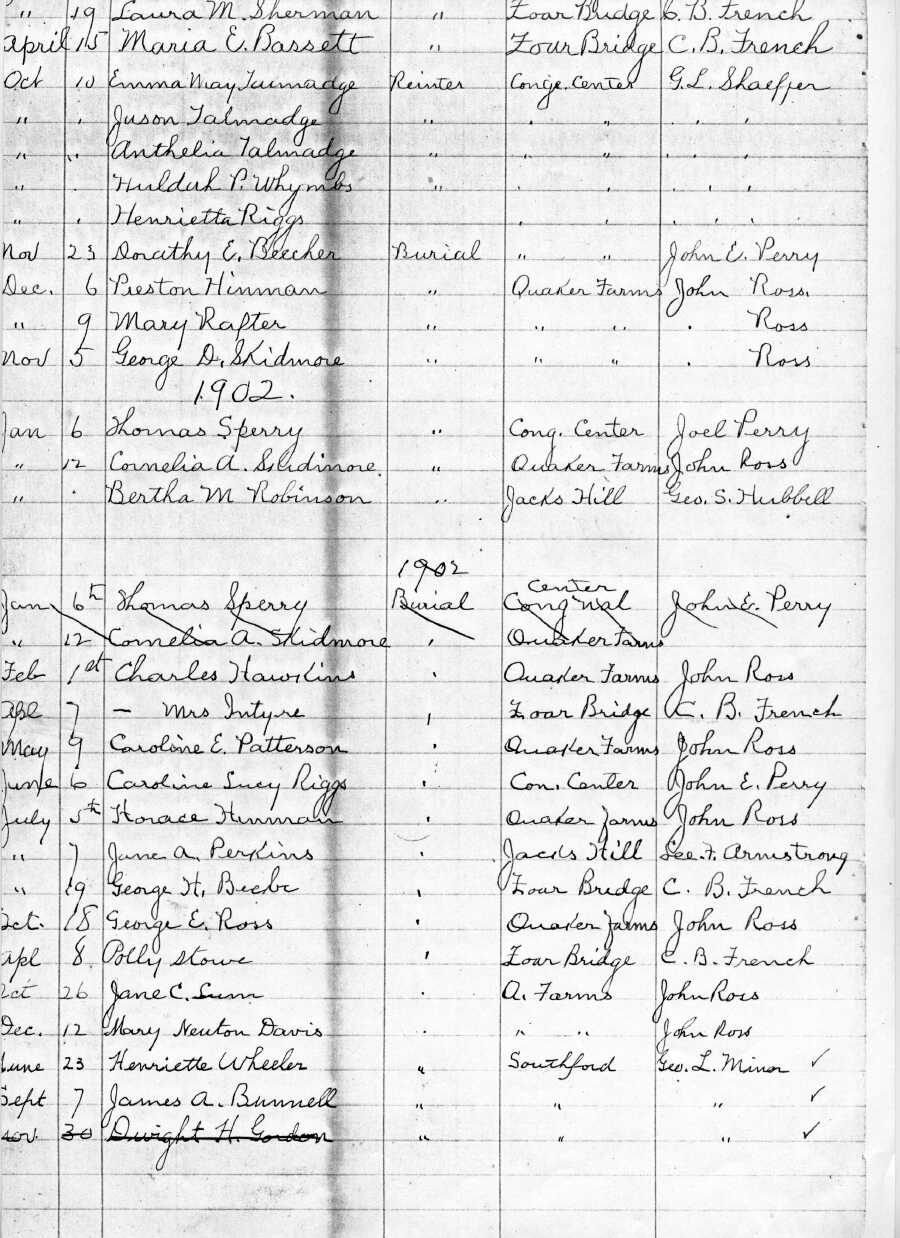 " 19 Laura M. Sherman " Zoar Bridge C. B. French
April 15 Maria E. Bassett " Zoar Bridge C. B. French
Oct 10 Emma May Tuimadge Reinter Conge. Center G. L. Shaeffer
" " Juson Talmadge " " " " " "
" " Anthelia Talmadge " " " " " "
" " Huldah P. Whymbs " " " " " "
" " Henrietta Riggs " " " " " "
Nov 23 Dorathy E. Beecher Burial " " John E. Perry
Dec. 6 Preston Hinman " Quaker Farms John Ross.
" 9 Mary Rafter " " " " Ross
Nov 5 George D. Skidmore " " " " Ross
1902.
Jan 6 Thomas Sperry " Cong. Center Joel Perry
" 12 Cornelia A. Skidmore. " Quaker Farms John Ross
" " Bertha M Robinson " Jacks Hill Geo. S. Hubbell
1902
Jan 6th Thomas Sperry Burial Cong'nal center John E. Perry
" 12 Cornelia A. Skidmore " Quaker Farms
Feb 1st Charles Hawkins " Quaker Farms John Ross
Apl 7 — Mrs Intyre " Zoar Bridge C. B. French
May 9 Caroline E. Patterson " Quaker Farms John Ross
June 6 Caroline Lucy Riggs " Con. Center John E. Perry
July 5th Horace Hinman " Quaker farms John Ross
" 7 Jane A. Perkins " Jacks Hill Gee. F. Armstrong
" 19 George H. Beebe " Zoar Bridge C. B. French
Oct. 18 George E. Ross " Quaker farms John Ross
apl 8 Polly Stowe " Zoar Bridge C. B. French
Oct 26 Jane C. Lum " Q. Farms John Ross
Dec. 12 Mary Newton Davis " " " John Ross
June 23 Henriette Wheeler " Southford Geo. L. Minor ✓
Sept 7 James A. Bunnell " " " ✓
Nov. 30 Dwight H. Gordon " " " ✓